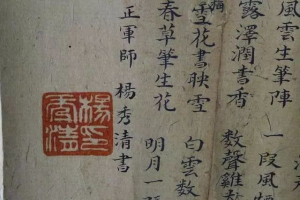 風雲生筆陣 一段風
露澤潤書香 數聲雞
雪花書映雪 白雲數
春草筆生花 明月一
正軍師 楊秀清書
楊秀清印